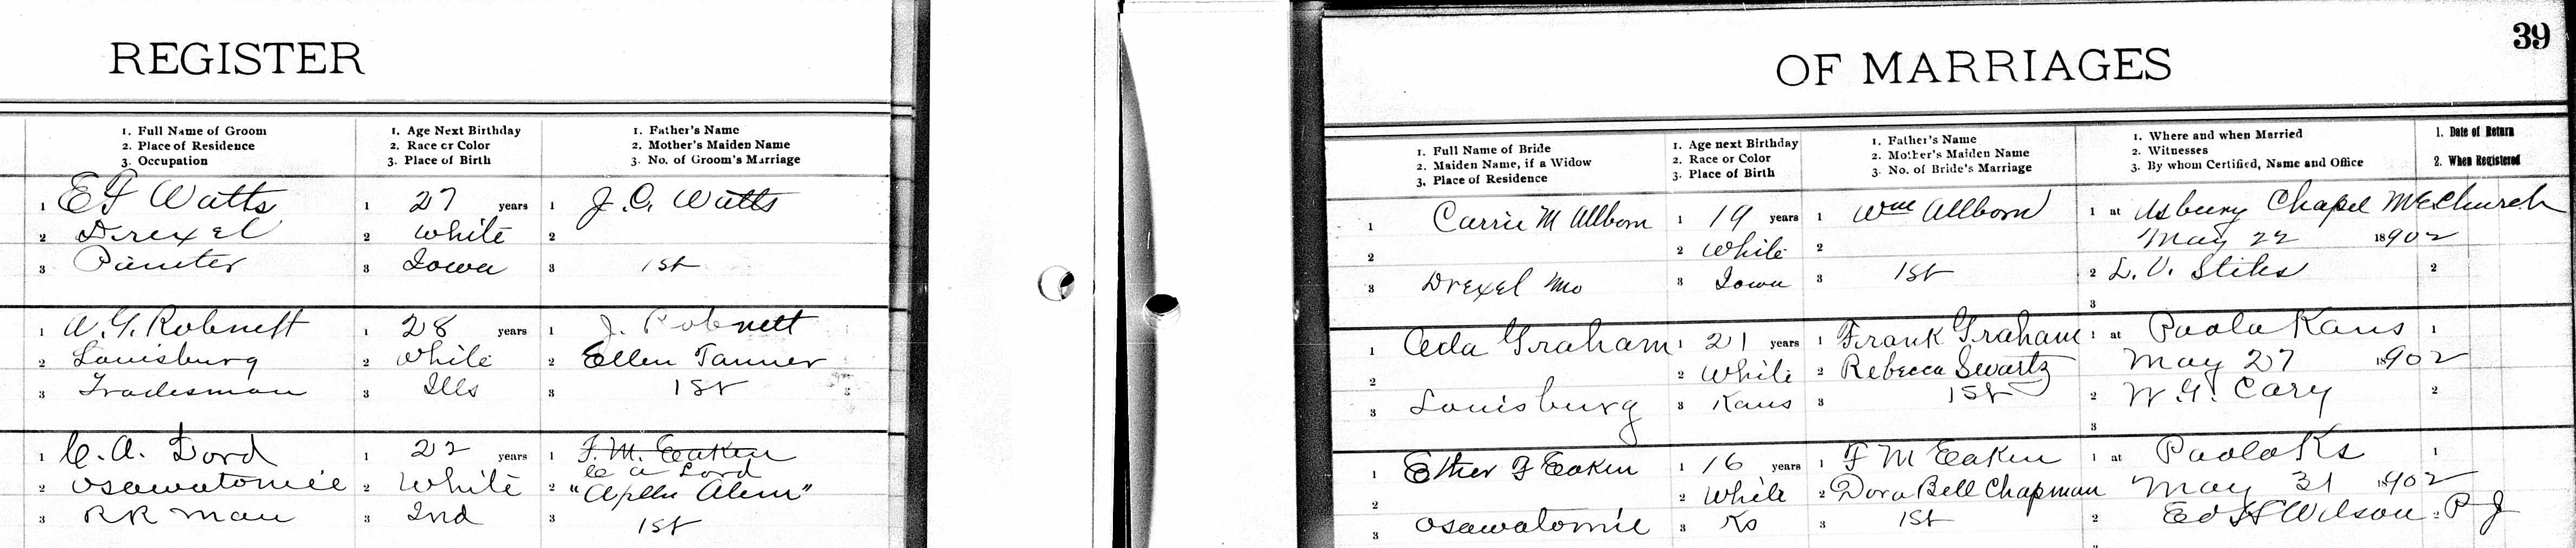 REGISTER
1. Full Name of Groom
2. Place of Residence
3. Occupation
1. Age Next Birthday
2. Race or Color
3. Place of Birth
1. Father's Name
2. Mother's Maiden Name
3. No. of Groom's Marriage
1 E F Watts 1 27 years 1 J. C. Watts
2 Drexel 2 White 2
3 Painter 3 Iowa 3 1st
1 A. G. Robnett 1 28 years 1 J. Robnett
2 Louisburg 2 White 2 Ellen Tanner
3 Tradesman 3 Ills 3 1st
1 C. A. Lord 1 22 years 1 F. M. Eaken
C A Lord
2 Osawatomie 2 White 2
3 RR Man 3 Ind 3 1st
39
OF MARRIAGES
1. Full Name of Bride
2. Maiden Name, if a Widow
3. Place of Residence
1. Age next Birthday
2. Race or Color
3. Place of Birth
1. Father's Name
2. Mother's Maiden Name
3. No. of Bride's Marriage
1. Where and when Married
2. Witnesses
3. By whom Certified, Name and Office
1. Date of Return
2. When Registered
1 Carrie M Allborn 1 19 years 1 Wm Allborn 1 at Asbury Chapel M E Church
2 2 White 2 May 22 18902
3 Drexel Mo 3 Iowa 3 1st 2 L. V. Stiles 2
3
1 Ada Graham 1 21 years 1 Frank Graham 1 at Paola Kans 1
2 2 White 2 Rebecca Swartz May 27 18902
3 Louisburg 3 Kans 3 1st 2 W. G. Cary 2
3
1 Esther F Eaken 1 16 years 1 F M Eaken 1 at Paola Ks 1
2 2 White 2 Dora Bell Chapman May 31 18902
3 Osawatomie 3 Ks 3 1st 2 Ed H Wilson 2 P J